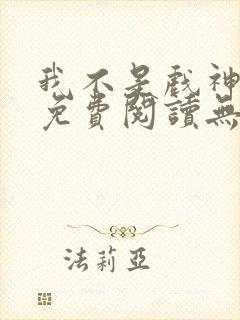 我不是戲神
免費閱讀無
法莉亞